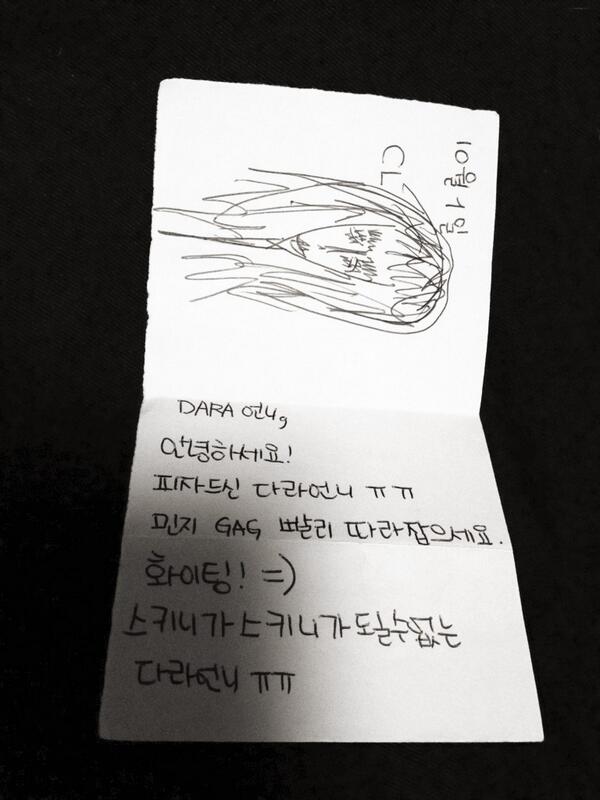 10월 1일
CL
DARA 언니,
안녕하세요!
피자드신 다라언니 ㅠㅠ
민지 GAG 빨리 따라잡으세요.
화이팅! =)
스키니가 스키니가 도일수없는
다라언니 ㅠㅠ